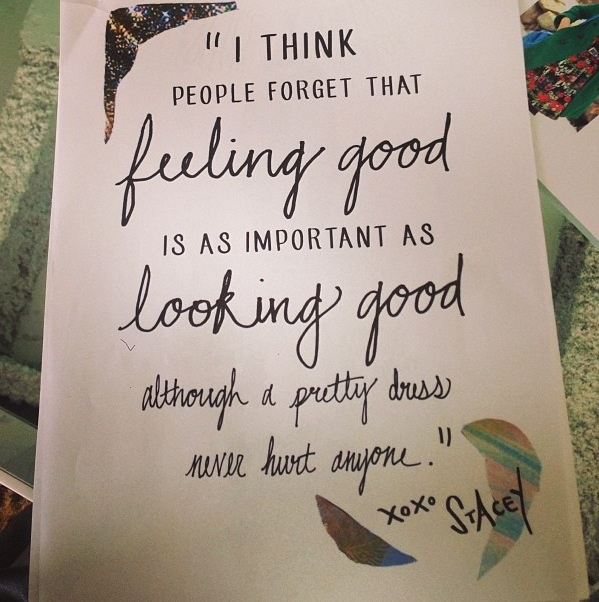 "I THINK
PEOPLE FORGET THAT
feeling good
IS AS IMPORTANT AS
looking good
although a pretty dress
never hurt anyone."
XOXO STACEY